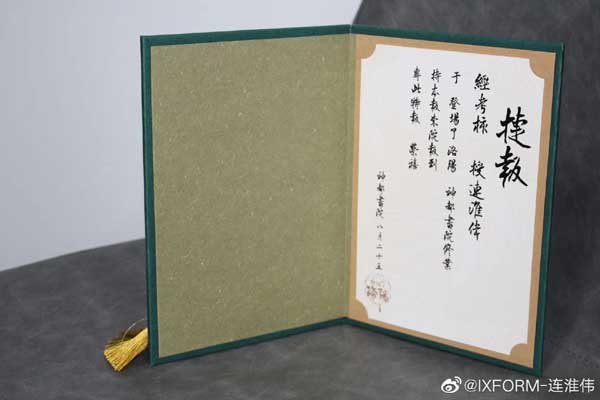 捷報
經考核 授連淮偉
于 登場了洛陽 神都書院修業
持本報來院報到
專此特報 榮禧
神都書院 八月二十五
@IXFORM-连淮伟